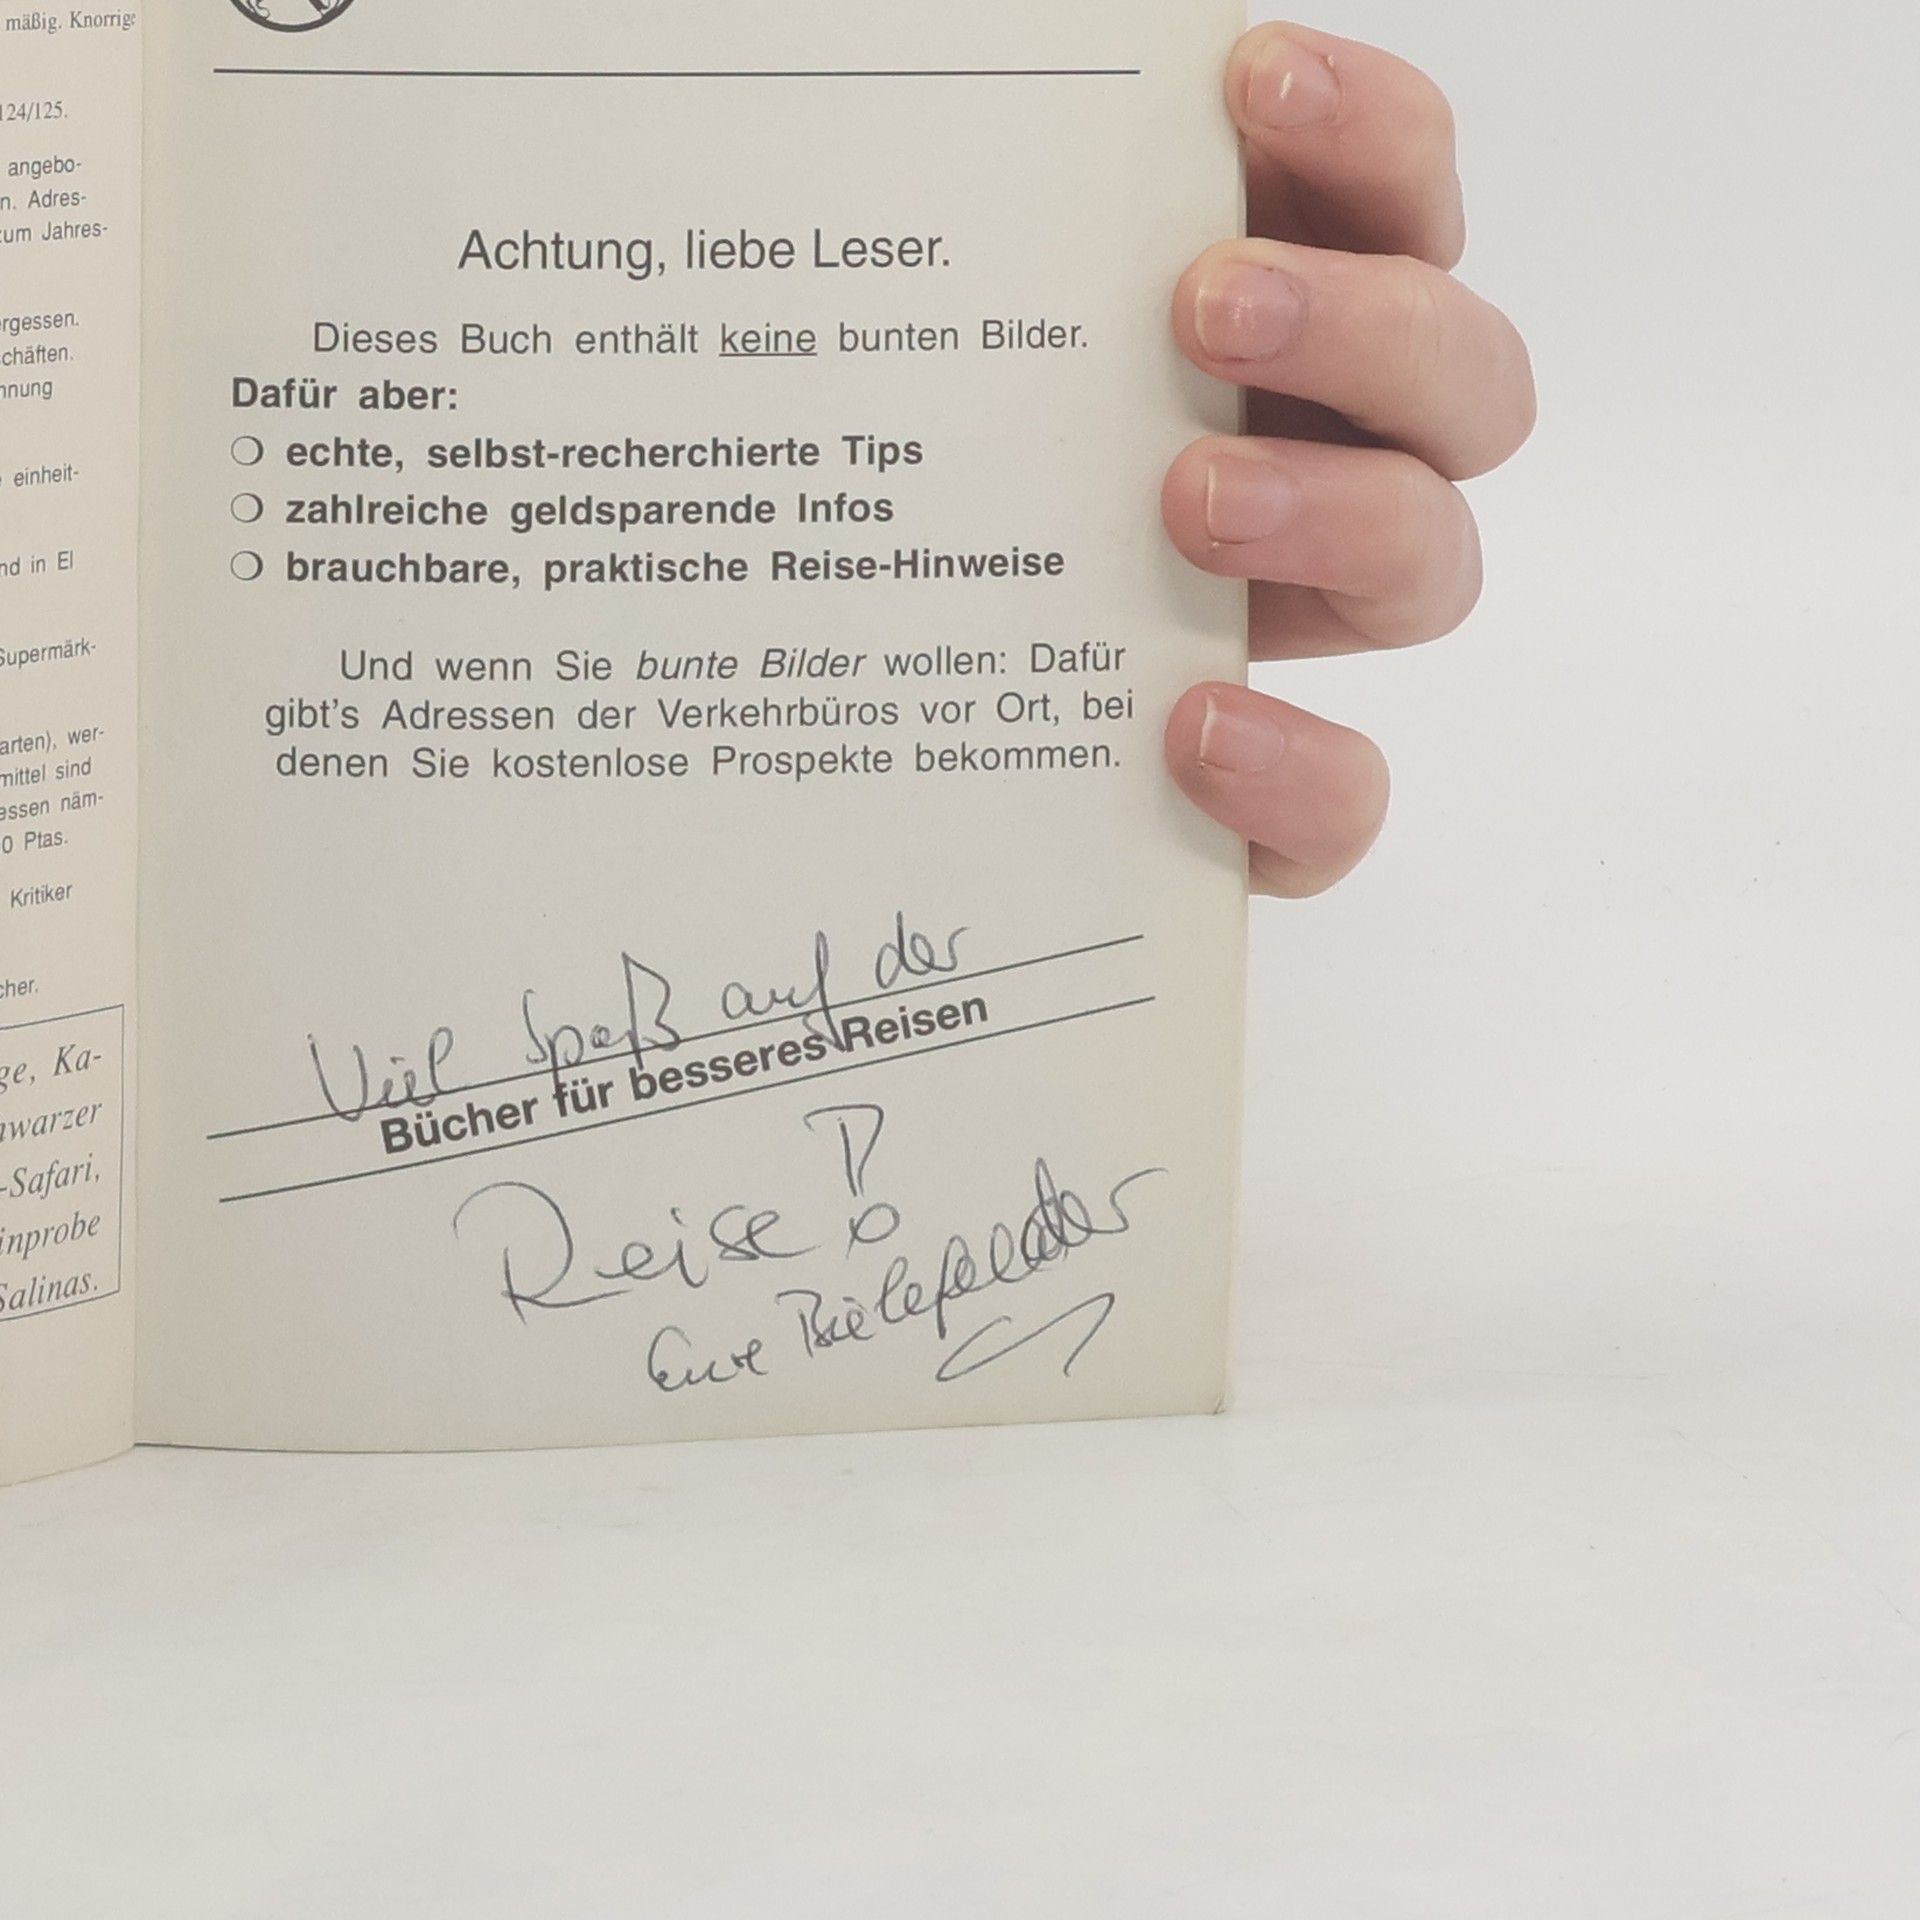 mäßig. Knorrige
124/125.
angebo-
n. Adres-
zum Jahres-
ergessen.
chäften.
nnung
einheit-
nd in El
Supermärk-
arten), wer-
mittel sind
essen näm-
0 Ptas.
Kritiker
cher.
ge, Ka-
hwarzer
-Safari,
inprobe
Salinas.
Achtung, liebe Leser.
Dieses Buch enthält keine bunten Bilder.
Dafür aber:
❍ echte, selbst-recherchierte Tips
❍ zahlreiche geldsparende Infos
❍ brauchbare, praktische Reise-Hinweise
Und wenn Sie bunte Bilder wollen: Dafür
gibt's Adressen der Verkehrbüros vor Ort, bei
denen Sie kostenlose Prospekte bekommen.
Viel Spaß auf der
Bücher für besseres Reisen
Reise!
Eure Bielefelder